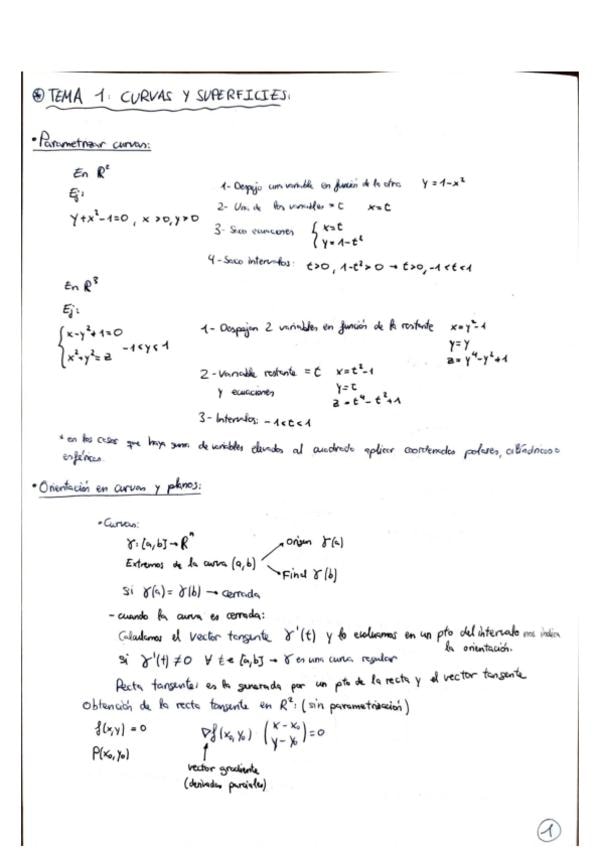 * TEMA 1: CURVAS Y SUPERFICIES:
• Parametrizar curvas:
En R²
Ej:
y+x²-1=0, x>0, y>0
1- Despejo una variable en función de la otra y=1-x²
2- Una de las variables = t x=t
3- Saco ecuaciones { x=t
y=1-t²
4- Saco intervalos: t>0, 1-t²>0 → t>0, -1<t<1
En R³
Ej:
{ x-y²+1=0
x²+y²=z -1<y<1
1- Despejan 2 variables en función de la restante x=y²-1
y=y
z=y⁴-y²+1
2- Variable restante = t x=t²-1
y ecuaciones y=t
z=t⁴-t²+1
3- Intervalos: -1<t<1
* en los casos que haya suma de variables elevados al cuadrado aplicar coordenadas polares, cilíndricas o
esféricas.
• Orientación en curvas y planos:
• Curvas:
γ: [a,b] → Rⁿ
Extremos de la curva (a,b)
→ Origen γ(a)
→ Final γ(b)
Si γ(a) = γ(b) → cerrada
- cuando la curva es cerrada:
Calculamos el vector tangente γ'(t) y lo evaluamos en un pto del intervalo nos indica
la orientación.
Si γ'(t) ≠ 0 ∀ t ∈ [a,b] → γ es una curva regular
Recta tangente: es la generada por un pto de la recta y el vector tangente
Obtención de la recta tangente en R²: (sin parametrización)
f(x,y) = 0
P(x₀,y₀)
∇f(x₀,y₀) · (x-x₀
y-y₀) = 0
vector gradiente
(derivadas parciales)
1